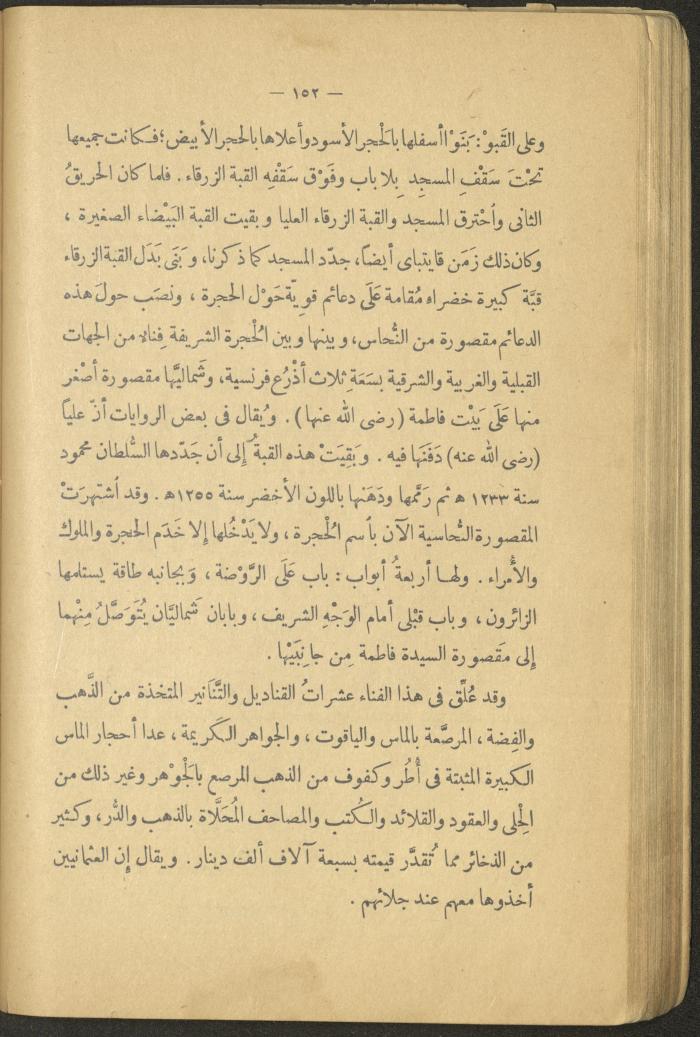 — ١٥٢ —
وعلى القَبوْ : بَنَوْا أسفلها بالْحجر الأسود وأعلاها بالحجر الأبيض ؛ فكانت جميعها
تحْتَ سَقْفِ المسجِدِ بِلا باب وفَوْق سَقْفِه القبة الزرقاء . فلما كان الحريقُ
الثانى واُحْترق المسجد والقبة الزرقاء العليا وبقيت القبة البَيْضاء الصغيرة ،
وكان ذلك زَمَن قايتباى أيضاً، جدّد المسجد كما ذكرنا، وبَنَى بَدَل القبة الزرقاء
قبَّة كبيرة خضراء مُقامة عَلَى دعائم قويّة حَوْل الحجرة ، ونصَب حولَ هذه
الدعائم مقصورة من النُّحاس، وبينها وبين الْحُجرة الشريفة فِناء من الجهات
القبلية والغربية والشرقية بسَعَة ثلاث أذْرُع فرنسية، وشَماليَّها مقصورة أصْغر
منها عَلَى بَيْت فاطمة (رضى الله عنها) . ويُقال فى بعض الروايات أنّ علياً
(رضى الله عنه) دَفَنَها فيه . وبَقِيَتْ هذه القبةُ إلى أن جَدّدها السُّلطان محمود
سنة ١٢٣٣ ﻫ ثم رَمَّمها ودَهَنها باللون الأخضر سنة ١٢٥٥ﻫ . وقد اُشتهرَتْ
المقصورة النُّحاسية الآن بأسم الْحُجرة ، ولا يَدْخُلها إلا خَدَم الحجرة والملوك
والأُمراء . ولها أربعةُ أبواب : باب عَلَى الرَّوْضة ، وَبجانبه طاقة يستلمها
الزائرون ، وباب قبْلى أمام الوَجْهِ الشريف ، وبابان شَماليَّان يُتَوَصَّلُ مِنْهما
إلى مَقصورة السيدة فاطمة مِن جانِبَيْها .
وقد عُلِّق فى هذا الفناء عشراتُ القناديل والتَّنَانير المتخذة من الذَّهب
والفِضة ، المرصَّعة بالماس والياقوت ، والجواهر الكَريمة ، عدا أحجار الماس
الكبيرة المثبتة فى أُطُر وكفوف من الذهب المرصع بالْجَوْهر وغير ذلك من
الْحِلى والعقود والقلائد والكُتب والمصاحف الْمُحَلَّاة بالذهب والدُّر ، وكثير
من الذخائر مما تُقدَّر قيمته بسبعة آلاف ألف دينار . ويقال إن العثمانيين
أخذوها معهم عند جلائهم .